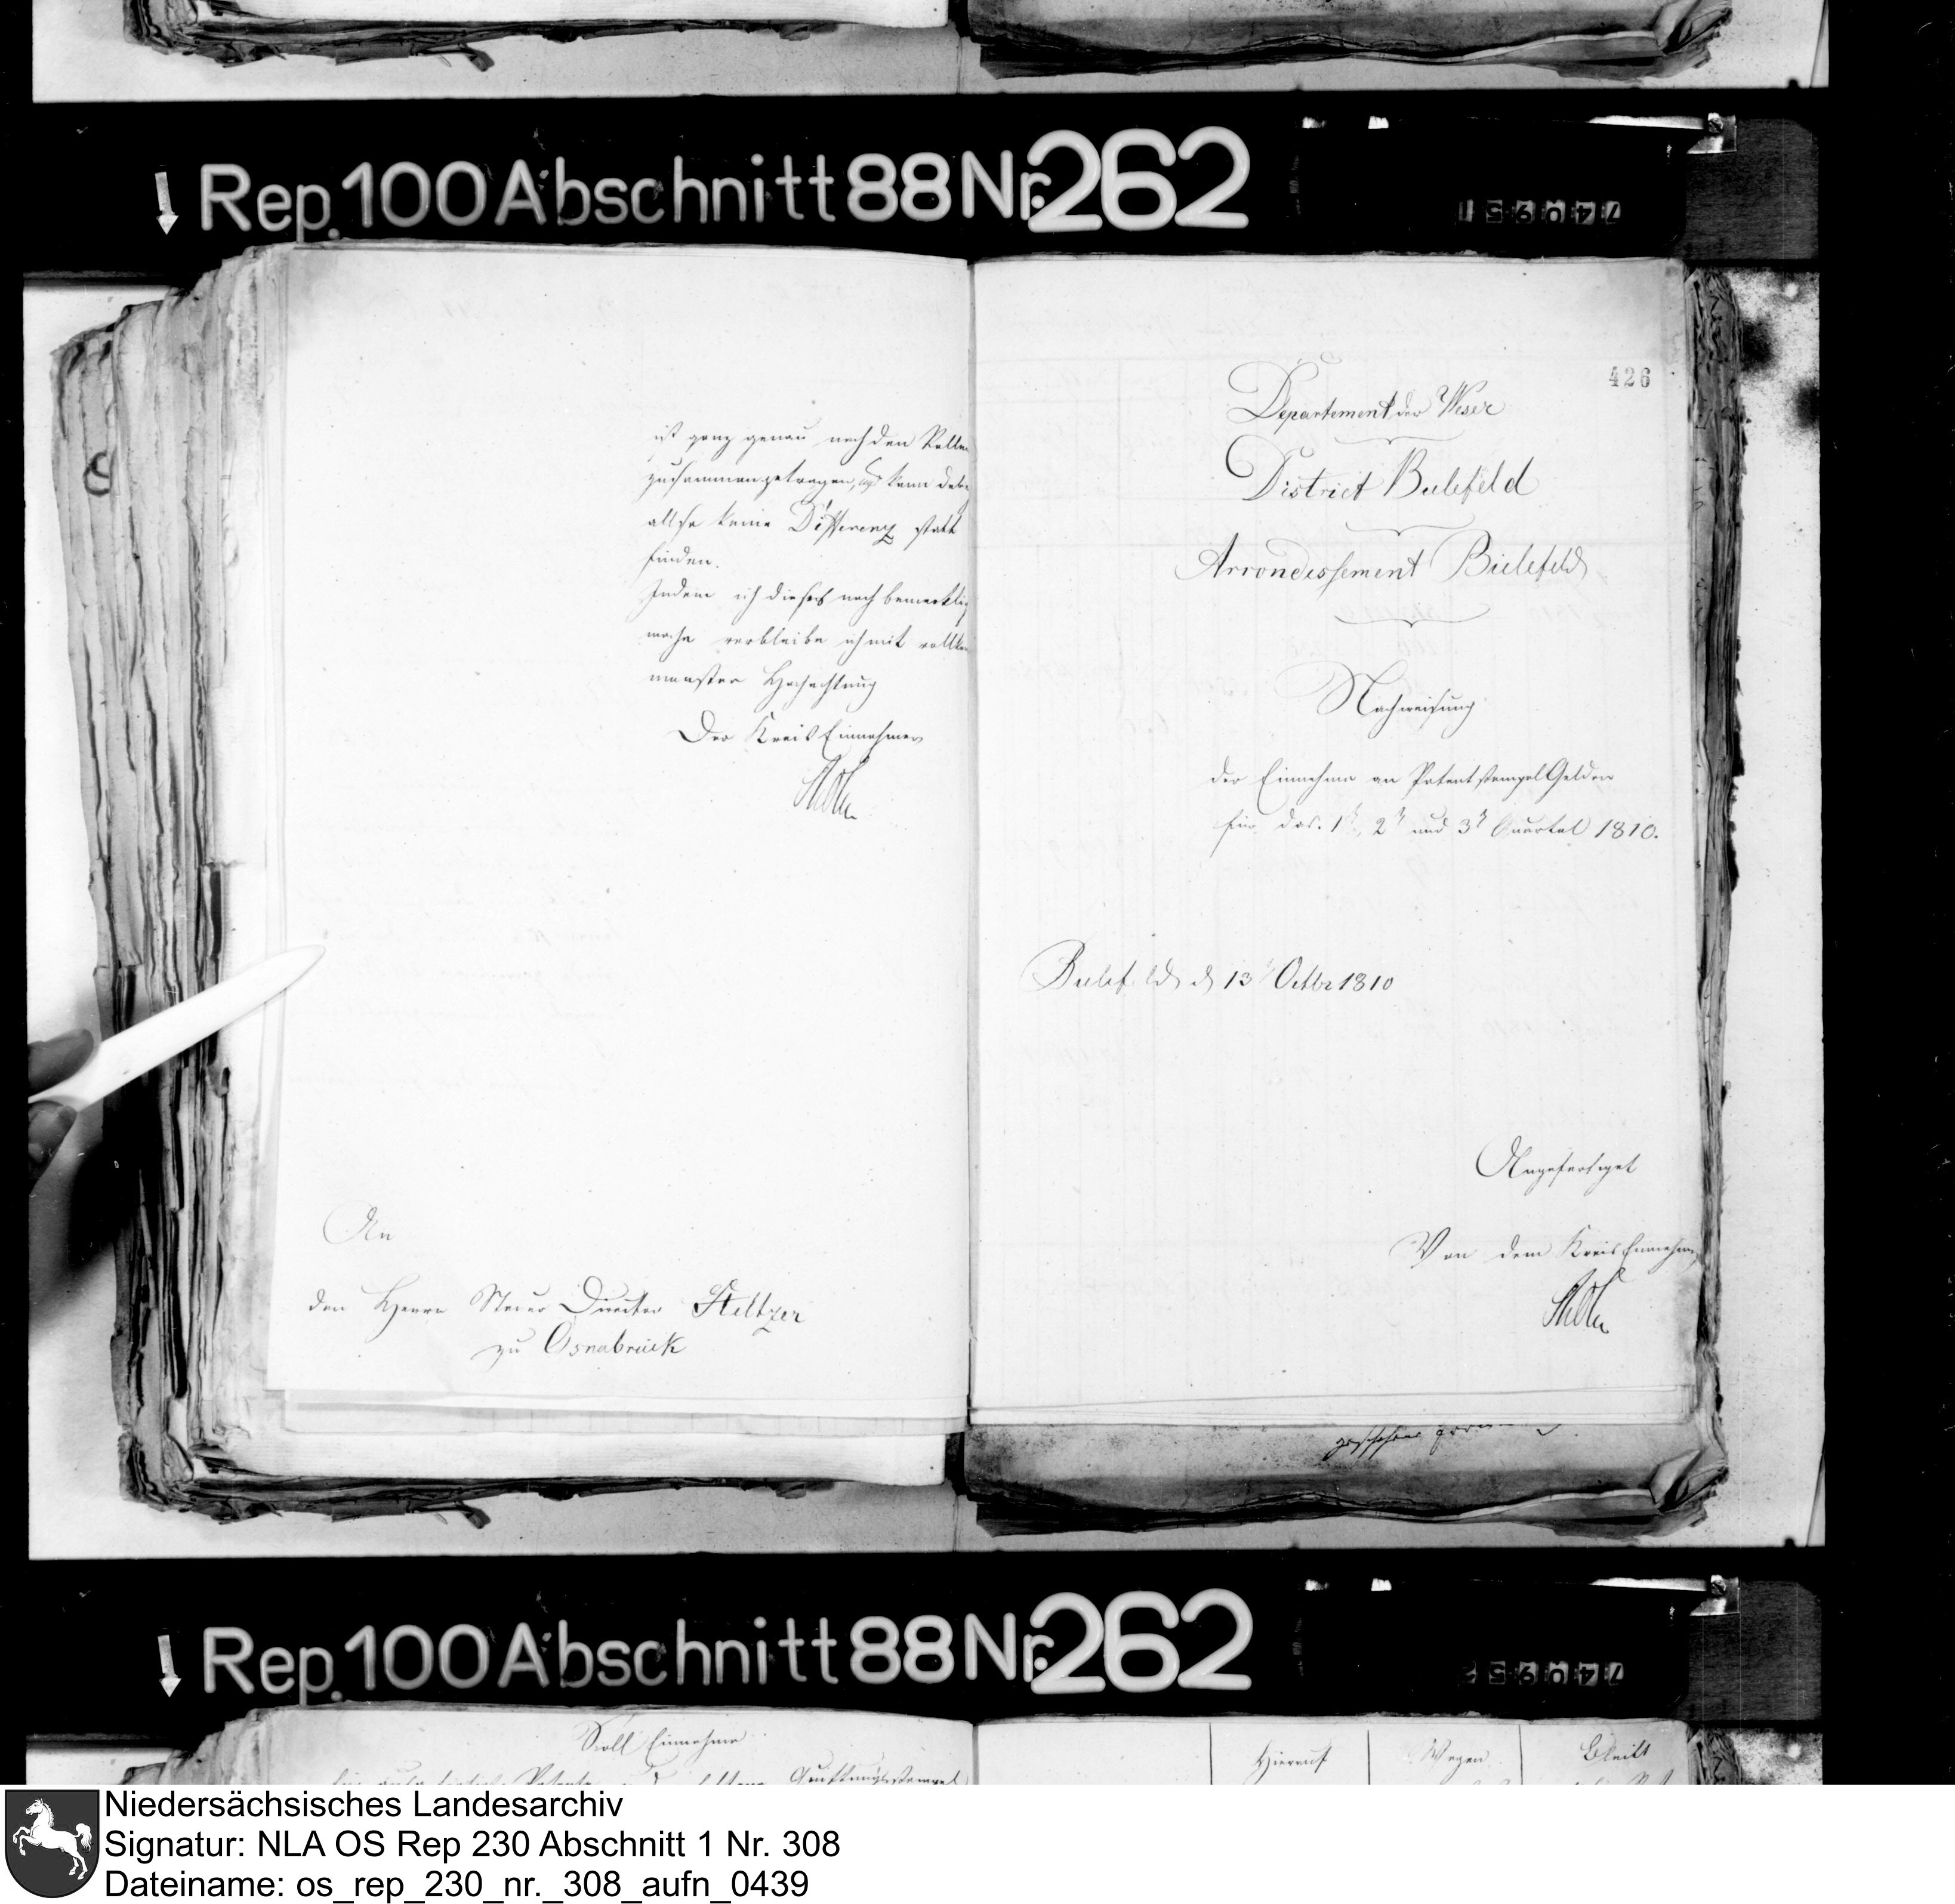 Rep. 100 Abschnitt 88 Nr. 262
740951
ist ganz genau nach den Rollen
zusammengetragen, es kann dabey
allso keine Differenz statt
finden.
Indem ich dieses noch bemerklich
mache verbleibe ich mit vollkom
menster Hochachtung
Der Kreis Einnehmer
An
den Herrn Steuer Director Heltzer
zu Osnabrück
426
Departement der Weser
District Bielefeld
Arrondissement Bielefeld
Nachweisung
der Einnahme an Patentstempel Gelder
für das 1t, 2t und 3t Quartal 1810.
Bielefeld d 13t Octbr 1810
Angefertiget
Von dem Kreis Einnehmer
Rep. 100 Abschnitt 88 Nr. 262
740952
Soll Einnahme
Hierauf
Wegen
Bleibt
Niedersächsisches Landesarchiv
Signatur: NLA OS Rep 230 Abschnitt 1 Nr. 308
Dateiname: os_rep_230_nr._308_aufn_0439